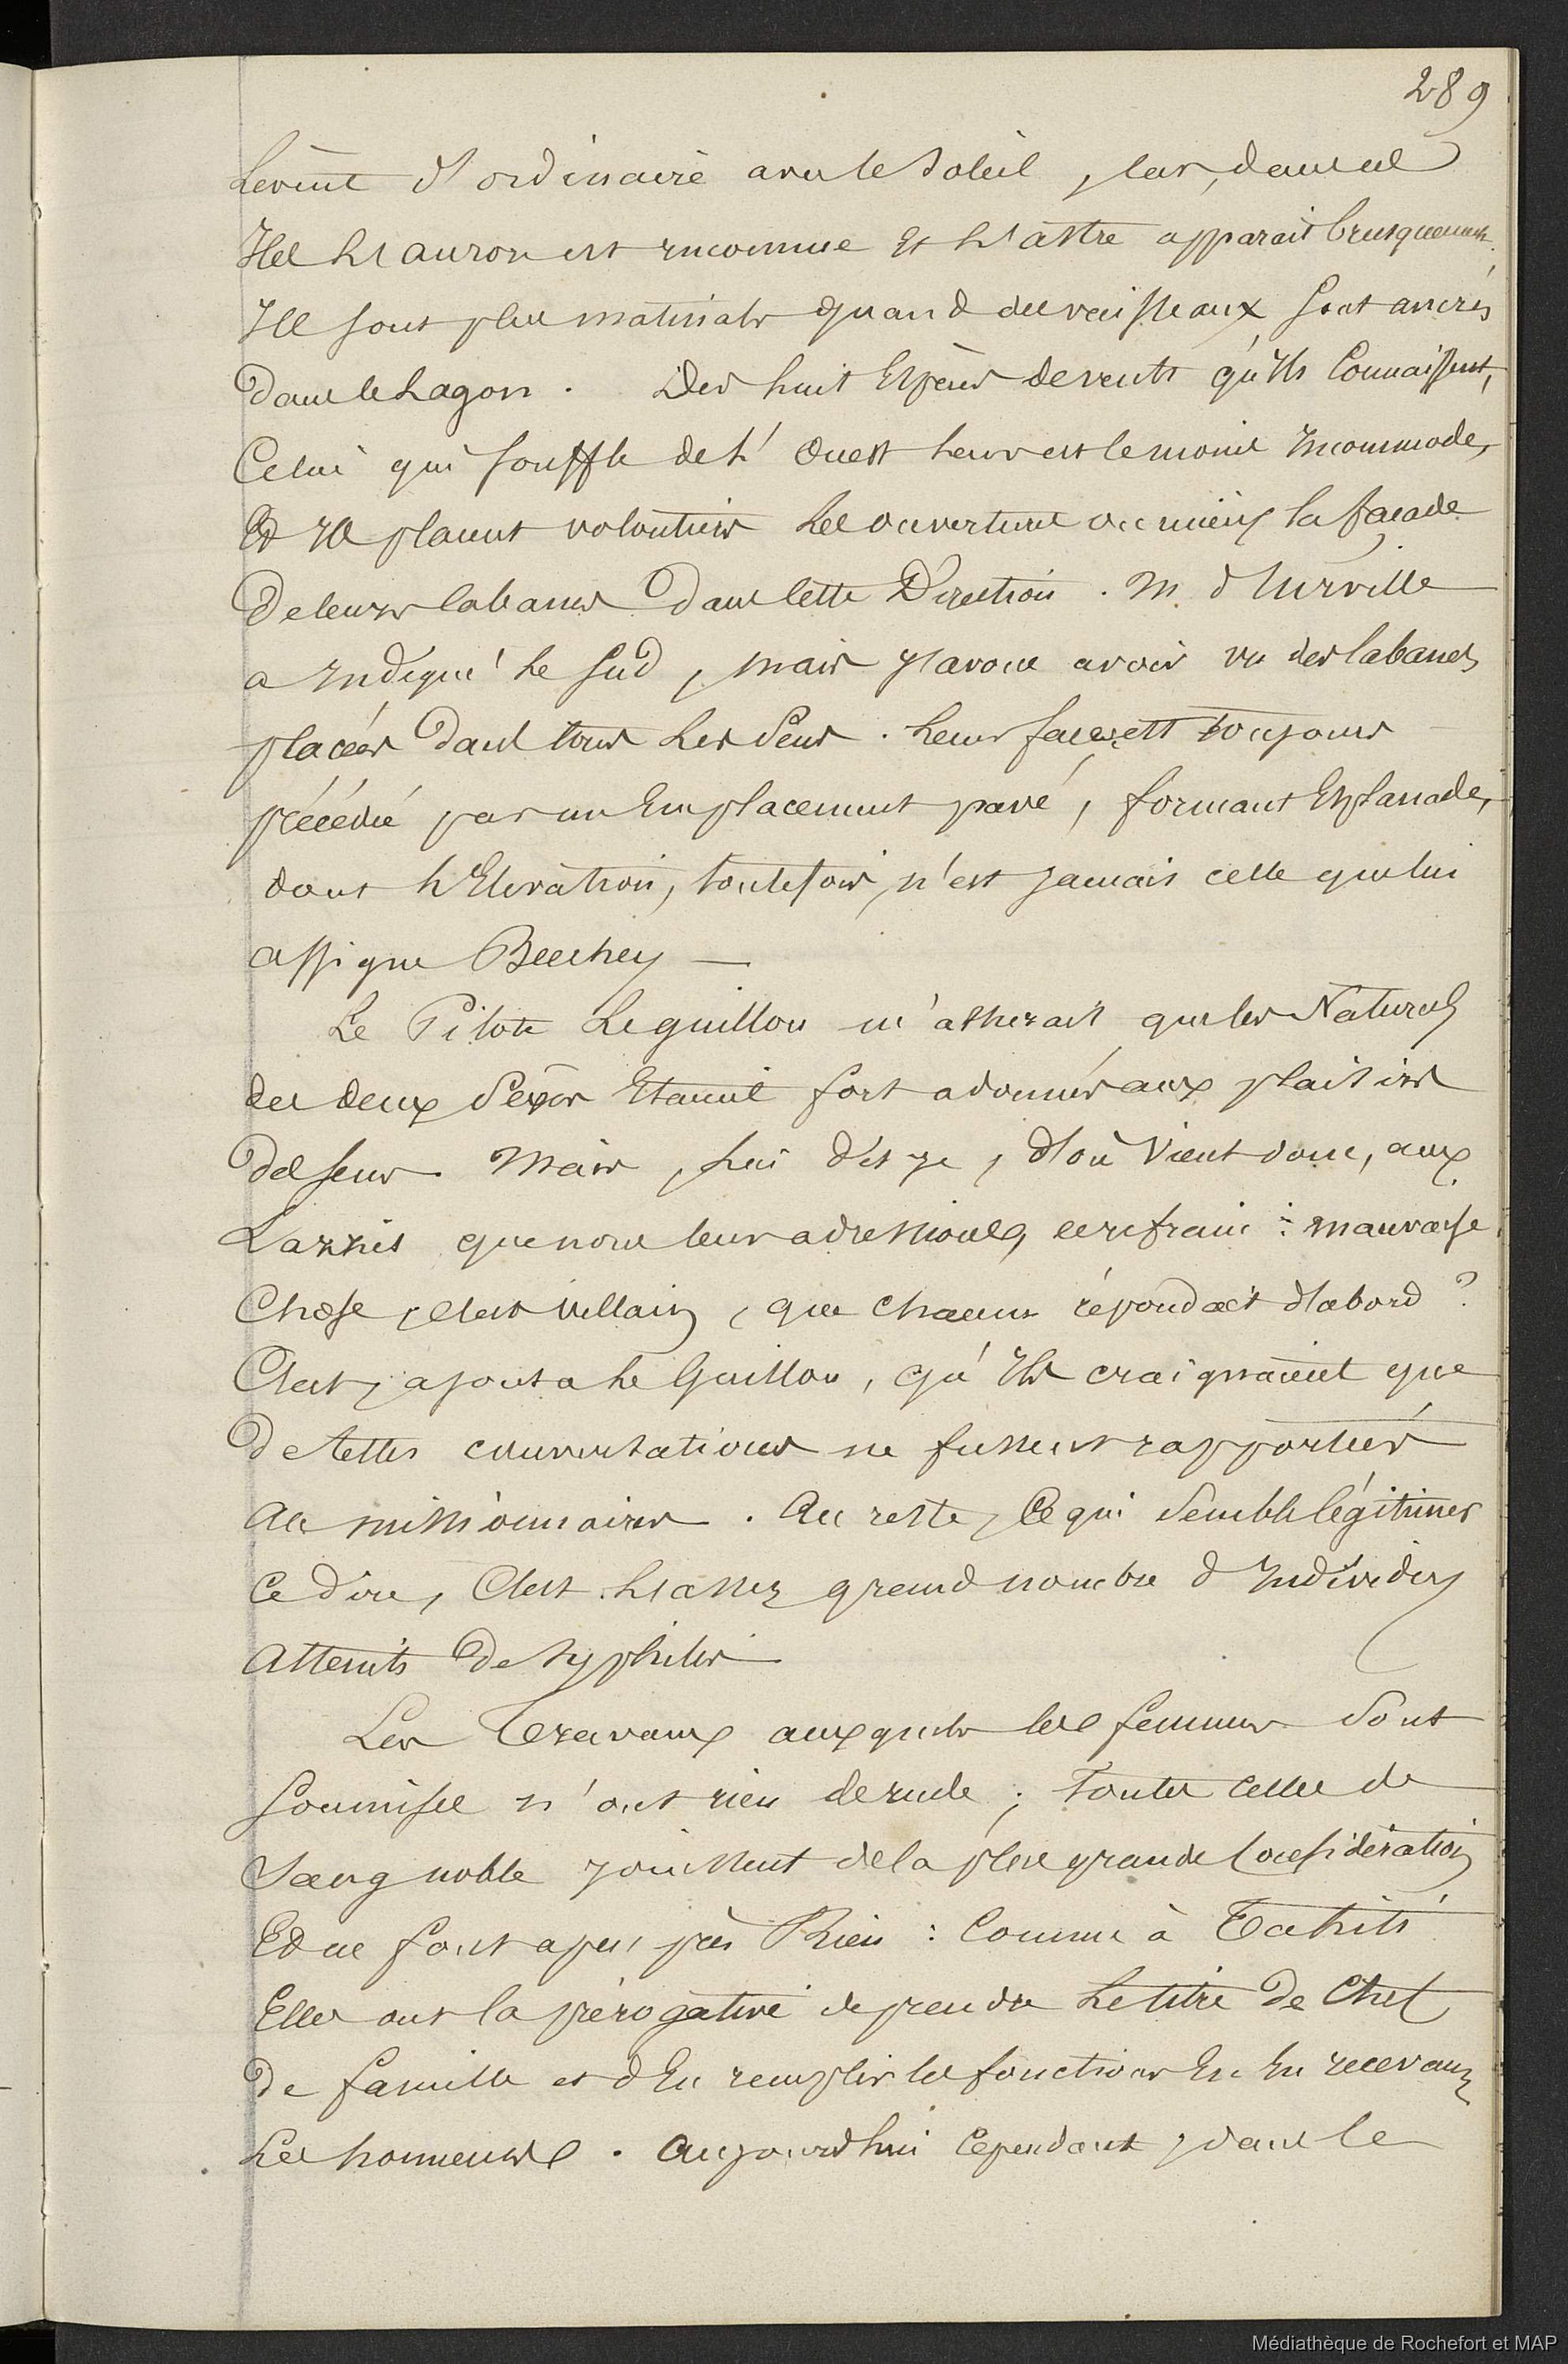 289
Lèvent d'ordinaire avec le Soleil, car, dans ces
Iles L'auror est inconnue et L'astre apparait brusquement.
Ils sont plus matinals quand des vaisseaux sont ancrés
dans le Lagon. Des huit Espèces de vents qu'Ils Connaissent,
Celui qui souffle de L'Ouest Leur est le moins Incommode,
Et Ils placent volontiers Les ouvertures ou mieux la façade
de leurs Cabanes dans Cette Direction. M. d'Urville
a Indiqué Le Sud, mais J'avoue avoir vu des Cabanes
placées dans tous Les Sens. Leur face est toujours
précédée par un Emplacement pavé, formant Esplanade,
dont L'Elévation, toutefois, n'est Jamais celle que lui
assigne Beechey —
Le Pilote Leguillou m'assurait que les Naturels
des deux Sexes Etaient fort adonnés aux plaisirs
des sens. Mais, lui dis-je, d'où Vient donc, aux
Lazzis que nous leur adressions, ce refrain : mauvaise
Chose, c'est villain, que chacun répondait d'abord ?
C'est, ajouta Le Guillou, qu'Ils craignaient que
de telles conversations ne fussent rapportées
au missionnaires. Au reste, Ce qui Semble légitimer
Ce dire, C'est L'assez grand nombre d'Individus
Atteints de Syphilis
Les Travaux auxquels les femmes Sont
Soumises n'ont rien de rude ; toutes celles de
Sang noble jouissent de la plus grande Considération
Et ne font a peu près Rien : Comme à Tahiti
Elles ont la prérogative de prendre Le titre de Chef
de famille et d'En remplir les fonctions En En recevant
Les honneurs. Aujourd'hui Cependant, dans le
Médiathèque de Rochefort et MAP